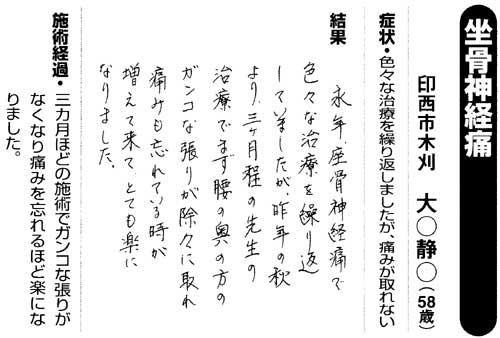 坐骨神経痛
印西市木刈 大〇静〇(58歳)
症状・色々な治療を繰り返しましたが、痛みが取れない
結果
永年、座骨神経痛で
色々な治療を繰り返
して来ましたが、昨年の秋
より、三ヶ月程の先生の
治療でまず腰の奥の方の
ガンコな張りが除々に取れ
痛みも忘れている時が
増えて来て、とても楽に
なりました。
施術経過・三カ月ほどの施術でガンコな張りが
なくなり痛みを忘れるほど楽にな
りました。